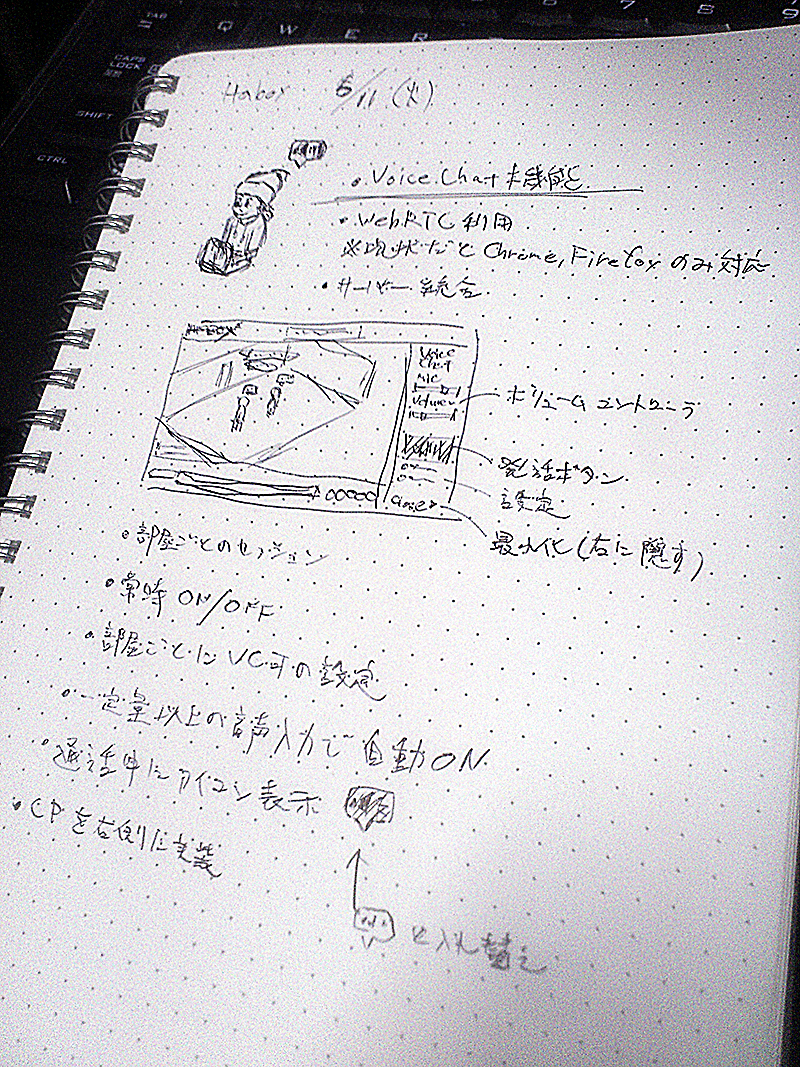 TAB
Q
W
E
R
7
8
9
CAPS LOCK
SHIFT
CTRL
6/11 (火)
・Voice Chat 機能
・WebRTC 利用
※現状だと Chrome, Firefox のみ対応
・サーバー統合
Voice Chat
MIC
Volume
ボリュームコントローラ
発話ボタン
設定
Close
最小化(右に隠す)
・部屋ごとのセッション
・常時 ON/OFF
・部屋ごとに VC可の設定
・一定量以上の音声入力で自動ON
・通話中にアイコン表示
・CPを右側に実装
と入れ替え